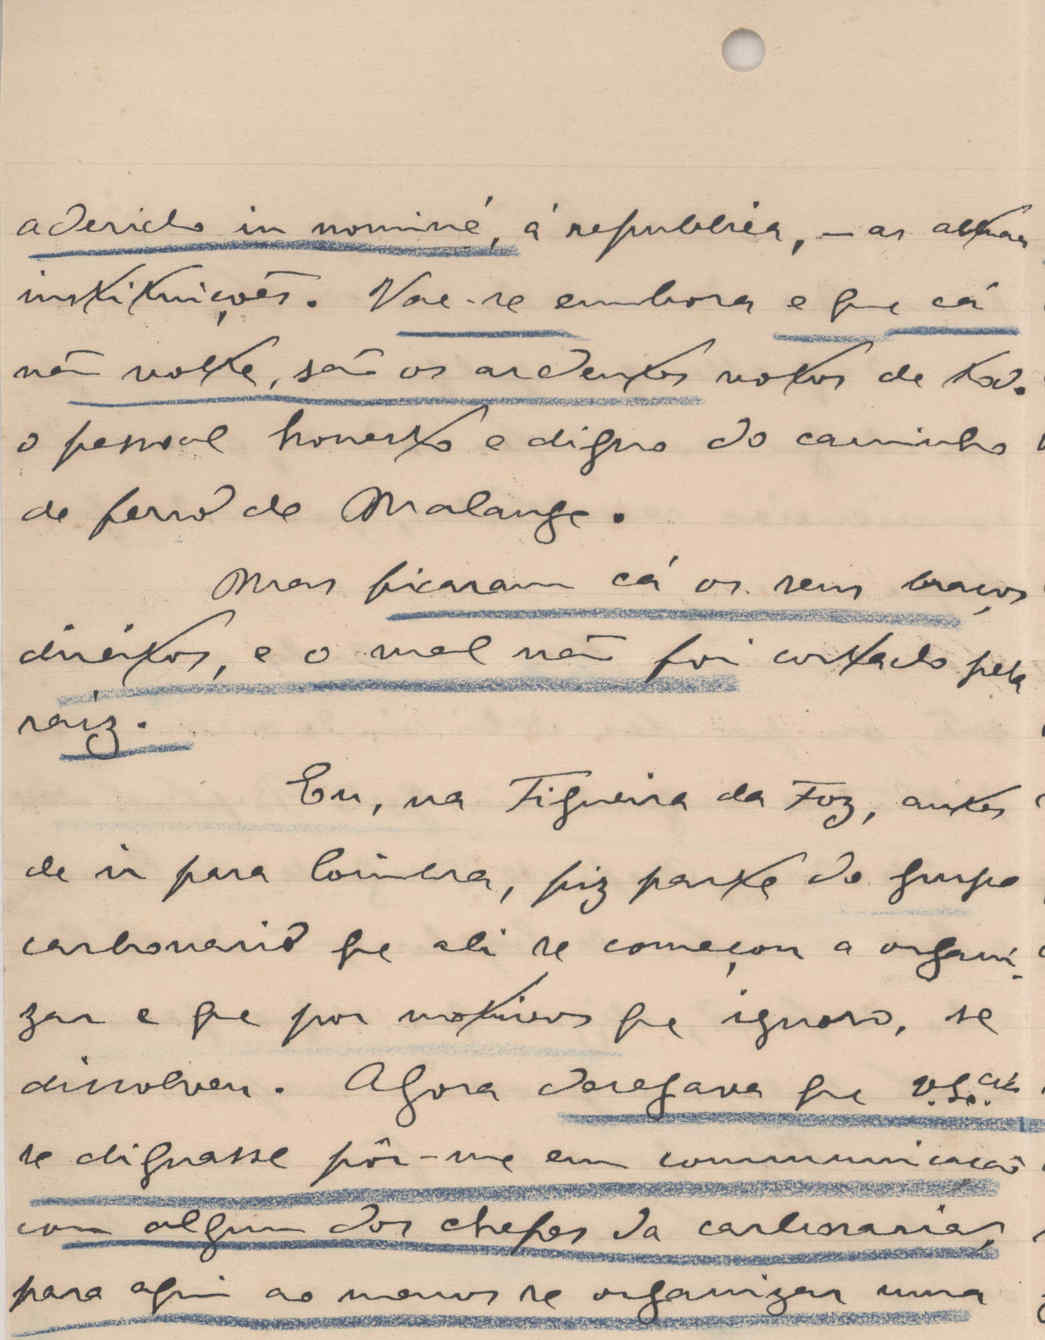 aderido in nominé, á republica, – as altuas
instituições. Vae-se embora e que cá
não volte, são os ardentes votos de todo
o pessoal honesto e digno do caminho
de ferro de Malange.
Mas ficaram cá os seus braços
direitos, e o mal não foi cortado pela
raiz.
Eu, na Figueira da Foz, antes
de ir para Coimbra, fiz parte do grupo
carbonario que ali se começou a organi-
zar e que por motivos que ignoro, se
dissolveu. Agora desejava que v. S.
se dignasse pôr-me em communicação
com algum dos chefes da carbonaria,
para aqui ao menos se organizar uma